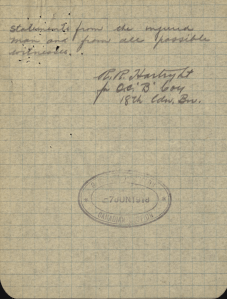 statements from the injured
man and from all possible
witnesses.
R. Hartnght
for O.C. 'B' Coy
18th Cdn. Bn.
27 JUN 1918